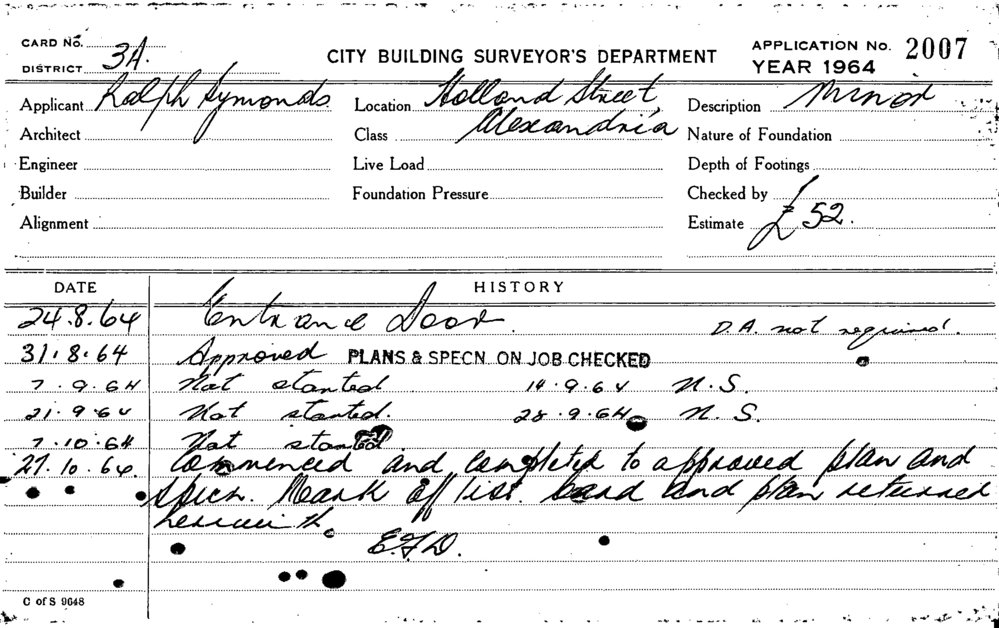 CARD No.
DISTRICT 3A.
CITY BUILDING SURVEYOR'S DEPARTMENT
APPLICATION No. 2007
YEAR 1964
Applicant Ralph Symonds
Location Holland Street,
Alexandria
Description Minor
Architect
Class
Nature of Foundation
Engineer
Live Load
Depth of Footings
Builder
Foundation Pressure
Checked by
Alignment
Estimate £52.
DATE HISTORY
24.8.64 Entrance Door. D.A. not required.
31.8.64 Approved PLANS & SPECN. ON JOB CHECKED
7.9.64 Not started 14.9.64 N.S.
21.9.64 Not started. 28.9.64 N.S.
7.10.64 Not started
27.10.64 Commenced and completed to approved plan and
specn. Mark off list. Card and plan returned
herewith.
E.F.D.
C of S 9648